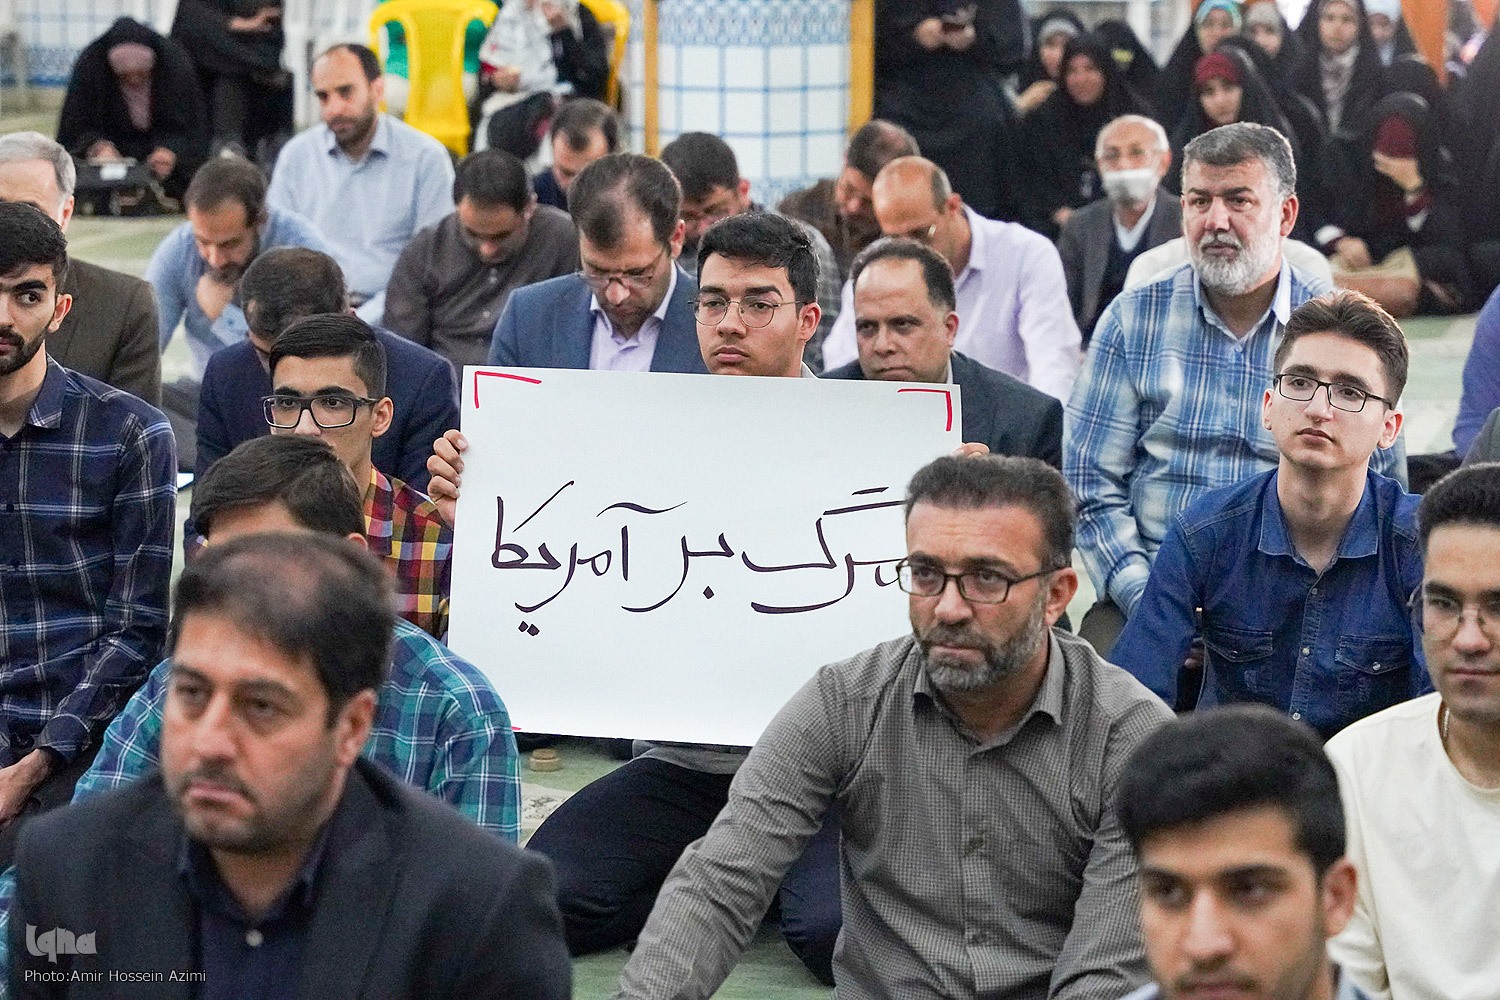 مرگ بر آمریکا
Iqna
Photo:Amir Hossein Azimi